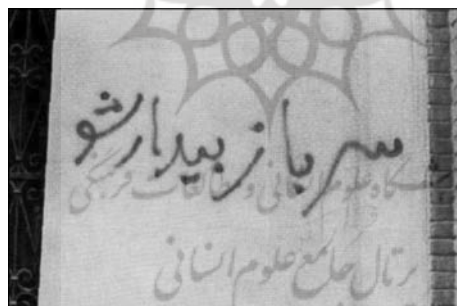 سرباز بیدار شو
پژوهشگاه علوم انسانی و مطالعات فرهنگی
پرتال جامع علوم انسانی